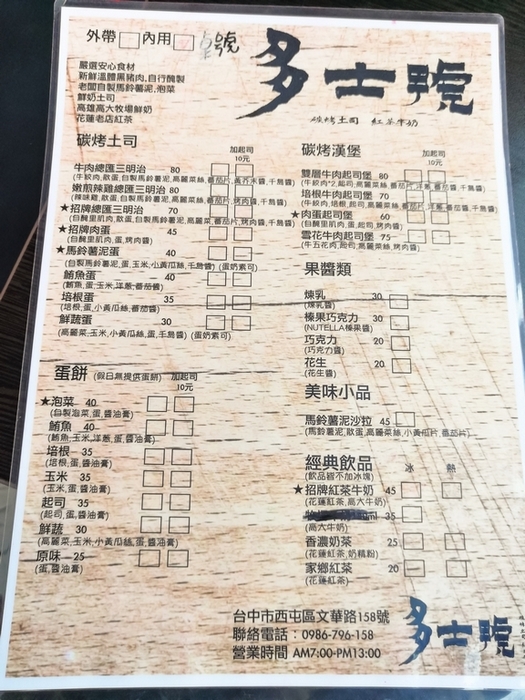 外帶 內用 桌號
多士號
碳烤土司 紅茶牛奶
嚴選安心食材
新鮮溫體黑豬肉,自行醃製
老闆自製馬鈴薯泥,泡菜
鮮奶土司
高雄高大牧場鮮奶
花蓮老店紅茶
碳烤土司 加起司
10元
牛肉總匯三明治 80
(牛絞肉,歐蛋,自製馬鈴薯泥,高麗菜絲,番茄片,黃芥末醬,千島醬)
嫩煎辣雞總匯三明治 80
(辣味雞,歐蛋,自製馬鈴薯泥,高麗菜絲,番茄片,烤肉醬,千島醬)
★招牌總匯三明治 70
(自醃里肌肉,歐蛋,自製馬鈴薯泥,高麗菜絲,番茄片,烤肉醬,千島醬)
★招牌肉蛋 45
(自醃里肌肉,蛋,烤肉醬)
★馬鈴薯泥蛋 40
(自製馬鈴薯泥,蛋,玉米,小黃瓜絲,千島醬) (蛋奶素可)
鮪魚蛋 40
(鮪魚,蛋,玉米,洋蔥,番茄醬)
培根蛋 35
(培根,蛋,小黃瓜絲,番茄醬)
鮮蔬蛋 30
(高麗菜,玉米,小黃瓜絲,蛋,千島醬) (蛋奶素可)
蛋餅 (假日無提供蛋餅) 加起司
10元
★泡菜 40
(自製泡菜,蛋,醬油膏)
鮪魚 40
(鮪魚,玉米,洋蔥,蛋,醬油膏)
培根 35
(培根,蛋,醬油膏)
玉米 35
(玉米,蛋,醬油膏)
起司 35
(起司,蛋,醬油膏)
鮮蔬 30
(高麗菜,玉米,小黃瓜絲,蛋,醬油膏)
原味 25
(蛋,醬油膏)
碳烤漢堡 加起司
10元
雙層牛肉起司堡 80
(牛絞肉*2,起司,高麗菜絲,番茄片,洋蔥,番茄醬,千島醬)
培根牛肉起司堡 70
(牛絞肉,培根,起司,高麗菜絲,番茄片,洋蔥,番茄醬,千島醬)
★肉蛋起司堡 60
(自醃里肌肉,蛋,起司,烤肉醬)
雪花牛肉起司堡 75
(牛五花肉,起司,烤肉醬)
果醬類
煉乳 30
(煉乳醬)
榛果巧克力 30
(NUTELLA榛果醬)
巧克力 20
(巧克力醬)
花生 20
(花生醬)
美味小品
馬鈴薯泥沙拉 45
(馬鈴薯泥,歐蛋,高麗菜絲,小黃瓜片,番茄片)
經典飲品 冰 熱
(飲品皆不加冰塊)
★招牌紅茶牛奶 45
(花蓮紅茶,高大牛奶)
35
(高大牛奶)
香濃奶茶 25
(花蓮紅茶,奶精粉)
家鄉紅茶 20
(花蓮紅茶)
台中市西屯區文華路158號
聯絡電話：0986-796-158
營業時間 AM7:00-PM13:00
多士號